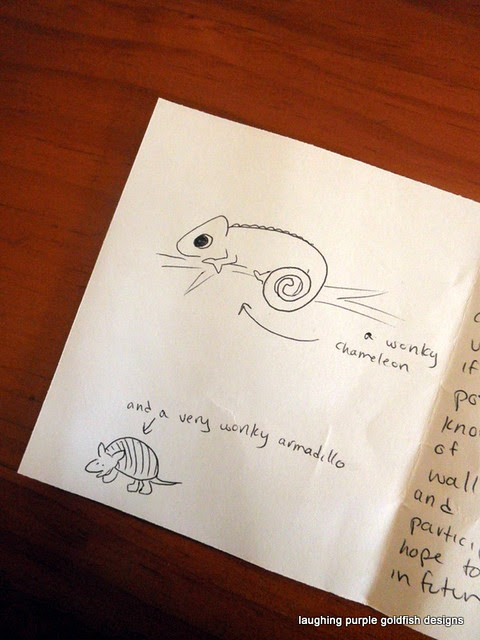 a wonky
chameleon
and a very wonky armadillo
if
of
wall
and
hope to
laughing purple goldfish designs